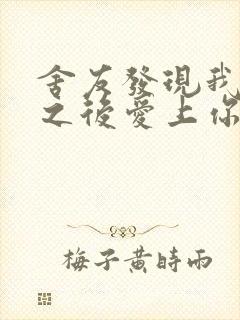 舍友發現我
之後愛上你
梅子黃時雨